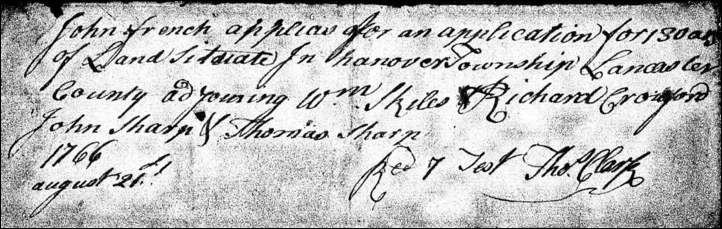 John french applies ffor an application for 130 acrs
of Land Situate In hanover Township Lancaster
County adjouning Wm Skiles & Richard Crosford
John Sharp & Thomas Sharp
1766
august 21st
Recd 7 Test Thos. Clark